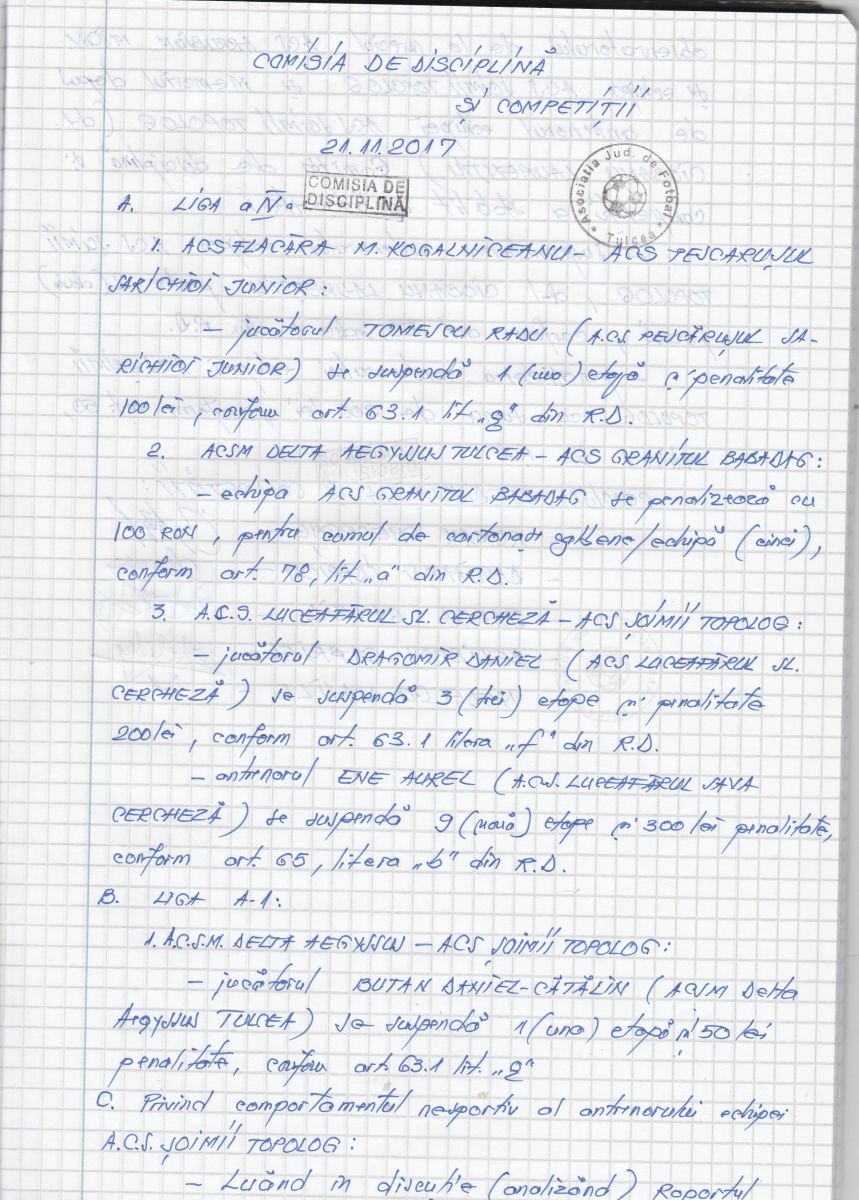 COMISIA DE DISCIPLINĂ
ȘI COMPETIȚII
21.11.2017
COMISIA DE
DISCIPLINĂ
Asociatia Jud. de Fotbal
* Tulcea *
A. LIGA a IV a
1. ACS FLACĂRA M. KOGALNICEANU - ACS PESCARUȘUL
SARICHIOI JUNIOR:
- jucătorul TOMESCU RADU (A.C.S. PESCĂRUȘUL SA-
RICHIOI JUNIOR) se suspendă 1 (una) etapă și penalitate
100 lei, conform art. 63.1 lit. „g" din R.D.
2. ACSM DELTA AEGYSSUS TULCEA - ACS GRANITUL BABADAG:
- echipa ACS GRANITUL BABADAG se penalizează cu
100 RON, pentru cumul de cartonașe galbene/echipă (cinci),
conform art. 78, lit „a" din R.D.
3. A.C.S. LUCEAFĂRUL SL. CERCHEZĂ - ACS ȘOIMII TOPOLOG:
- jucătorul DRAGOMIR DANIEL (ACS LUCEAFĂRUL SL.
CERCHEZĂ) se suspendă 3 (trei) etape și penalitate
200 lei, conform art. 63.1 litera „f" din R.D.
- antrenorul ENE AUREL (A.C.S. LUCEAFĂRUL SAVA
CERCHEZĂ) se suspendă 9 (nouă) etape și 300 lei penalitate,
conform art. 65, litera „b" din R.D.
B. LIGA A-1:
1. A.C.S.M. DELTA AEGYSSUS - ACS ȘOIMII TOPOLOG:
- jucătorul BUTAN DANIEL-CĂTĂLIN (ACSM Delta
Aegyssus TULCEA) se suspendă 1 (una) etapă și 50 lei
penalitate, conform art. 63.1 lit. „g"
C. Privind comportamentul nesportiv al antrenorului echipei
A.C.S. ȘOIMII TOPOLOG:
- Luând in discuție (analizând) Raportul